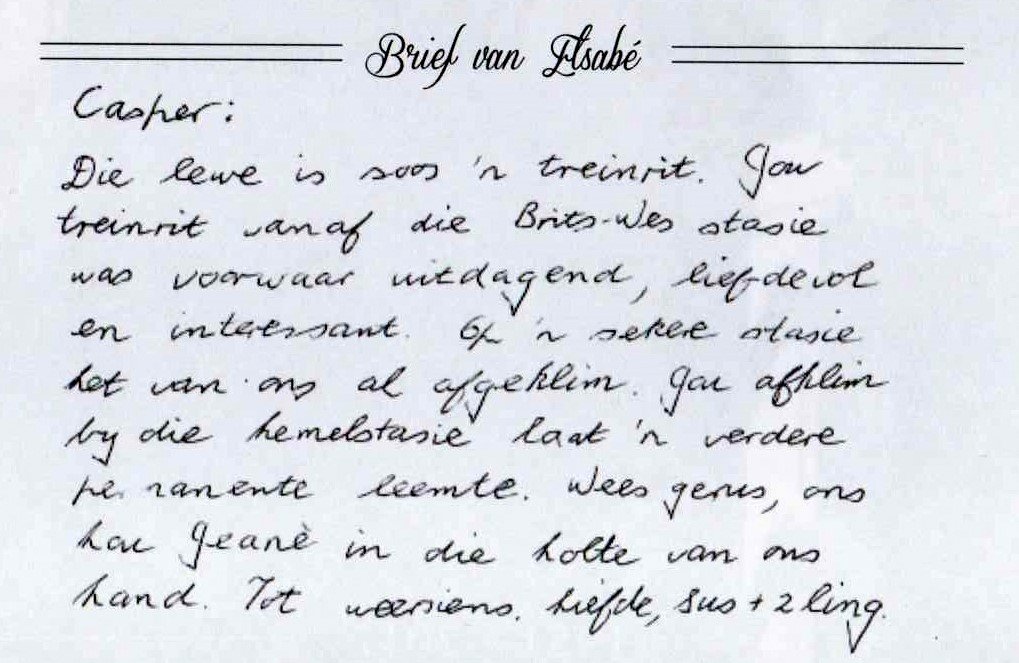 Brief van Elsabé
Casper:
Die lewe is soos 'n treinrit. Jou
treinrit vanaf die Brits-Wes stasie
was voorwaar uitdagend, liefdevol
en interessant. Op 'n sekere stasie
het van ons al afgeklim. Jou afklim
by die hemelstasie laat 'n verdere
permanente leemte. Wees gerus, ons
hou Jeanè in die holte van ons
hand. Tot weersiens. Liefde, Sus + 2ling.